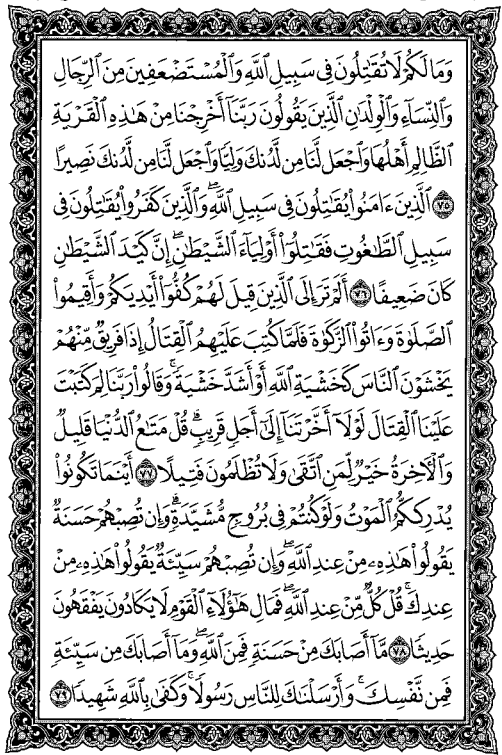 وَمَا لَكُمْ لَا تُقَٰتِلُونَ فِى سَبِيلِ ٱللَّهِ وَٱلْمُسْتَضْعَفِينَ مِنَ ٱلرِّجَالِ
وَٱلنِّسَآءِ وَٱلْوِلْدَٰنِ ٱلَّذِينَ يَقُولُونَ رَبَّنَآ أَخْرِجْنَا مِنْ هَٰذِهِ ٱلْقَرْيَةِ
ٱلظَّالِمِ أَهْلُهَا وَٱجْعَل لَّنَا مِن لَّدُنكَ وَلِيًّا وَٱجْعَل لَّنَا مِن لَّدُنكَ نَصِيرًا
٧٥ ٱلَّذِينَ ءَامَنُوا۟ يُقَٰتِلُونَ فِى سَبِيلِ ٱللَّهِ ۖ وَٱلَّذِينَ كَفَرُوا۟ يُقَٰتِلُونَ فِى
سَبِيلِ ٱلطَّٰغُوتِ فَقَٰتِلُوٓا۟ أَوْلِيَآءَ ٱلشَّيْطَٰنِ ۖ إِنَّ كَيْدَ ٱلشَّيْطَٰنِ
كَانَ ضَعِيفًا ٧٦ أَلَمْ تَرَ إِلَى ٱلَّذِينَ قِيلَ لَهُمْ كُفُّوٓا۟ أَيْدِيَكُمْ وَأَقِيمُوا۟
ٱلصَّلَوٰةَ وَءَاتُوا۟ ٱلزَّكَوٰةَ فَلَمَّا كُتِبَ عَلَيْهِمُ ٱلْقِتَالُ إِذَا فَرِيقٌ مِّنْهُمْ
يَخْشَوْنَ ٱلنَّاسَ كَخَشْيَةِ ٱللَّهِ أَوْ أَشَدَّ خَشْيَةً ۚ وَقَالُوا۟ رَبَّنَا لِمَ كَتَبْتَ
عَلَيْنَا ٱلْقِتَالَ لَوْلَآ أَخَّرْتَنَآ إِلَىٰٓ أَجَلٍ قَرِيبٍ ۗ قُلْ مَتَٰعُ ٱلدُّنْيَا قَلِيلٌ
وَٱلْءَاخِرَةُ خَيْرٌ لِّمَنِ ٱتَّقَىٰ وَلَا تُظْلَمُونَ فَتِيلًا ٧٧ أَيْنَمَا تَكُونُوا۟
يُدْرِككُّمُ ٱلْمَوْتُ وَلَوْ كُنتُمْ فِى بُرُوجٍ مُّشَيَّدَةٍ ۗ وَإِن تُصِبْهُمْ حَسَنَةٌ
يَقُولُوا۟ هَٰذِهِۦ مِنْ عِندِ ٱللَّهِ ۖ وَإِن تُصِبْهُمْ سَيِّئَةٌ يَقُولُوا۟ هَٰذِهِۦ مِنْ
عِندِكَ ۚ قُلْ كُلٌّ مِّنْ عِندِ ٱللَّهِ ۖ فَمَالِ هَٰٓؤُلَآءِ ٱلْقَوْمِ لَا يَكَادُونَ يَفْقَهُونَ
حَدِيثًا ٧٨ مَّآ أَصَابَكَ مِنْ حَسَنَةٍ فَمِنَ ٱللَّهِ ۖ وَمَآ أَصَابَكَ مِن سَيِّئَةٍ
فَمِن نَّفْسِكَ ۚ وَأَرْسَلْنَٰكَ لِلنَّاسِ رَسُولًا ۚ وَكَفَىٰ بِٱللَّهِ شَهِيدًا ٧٩